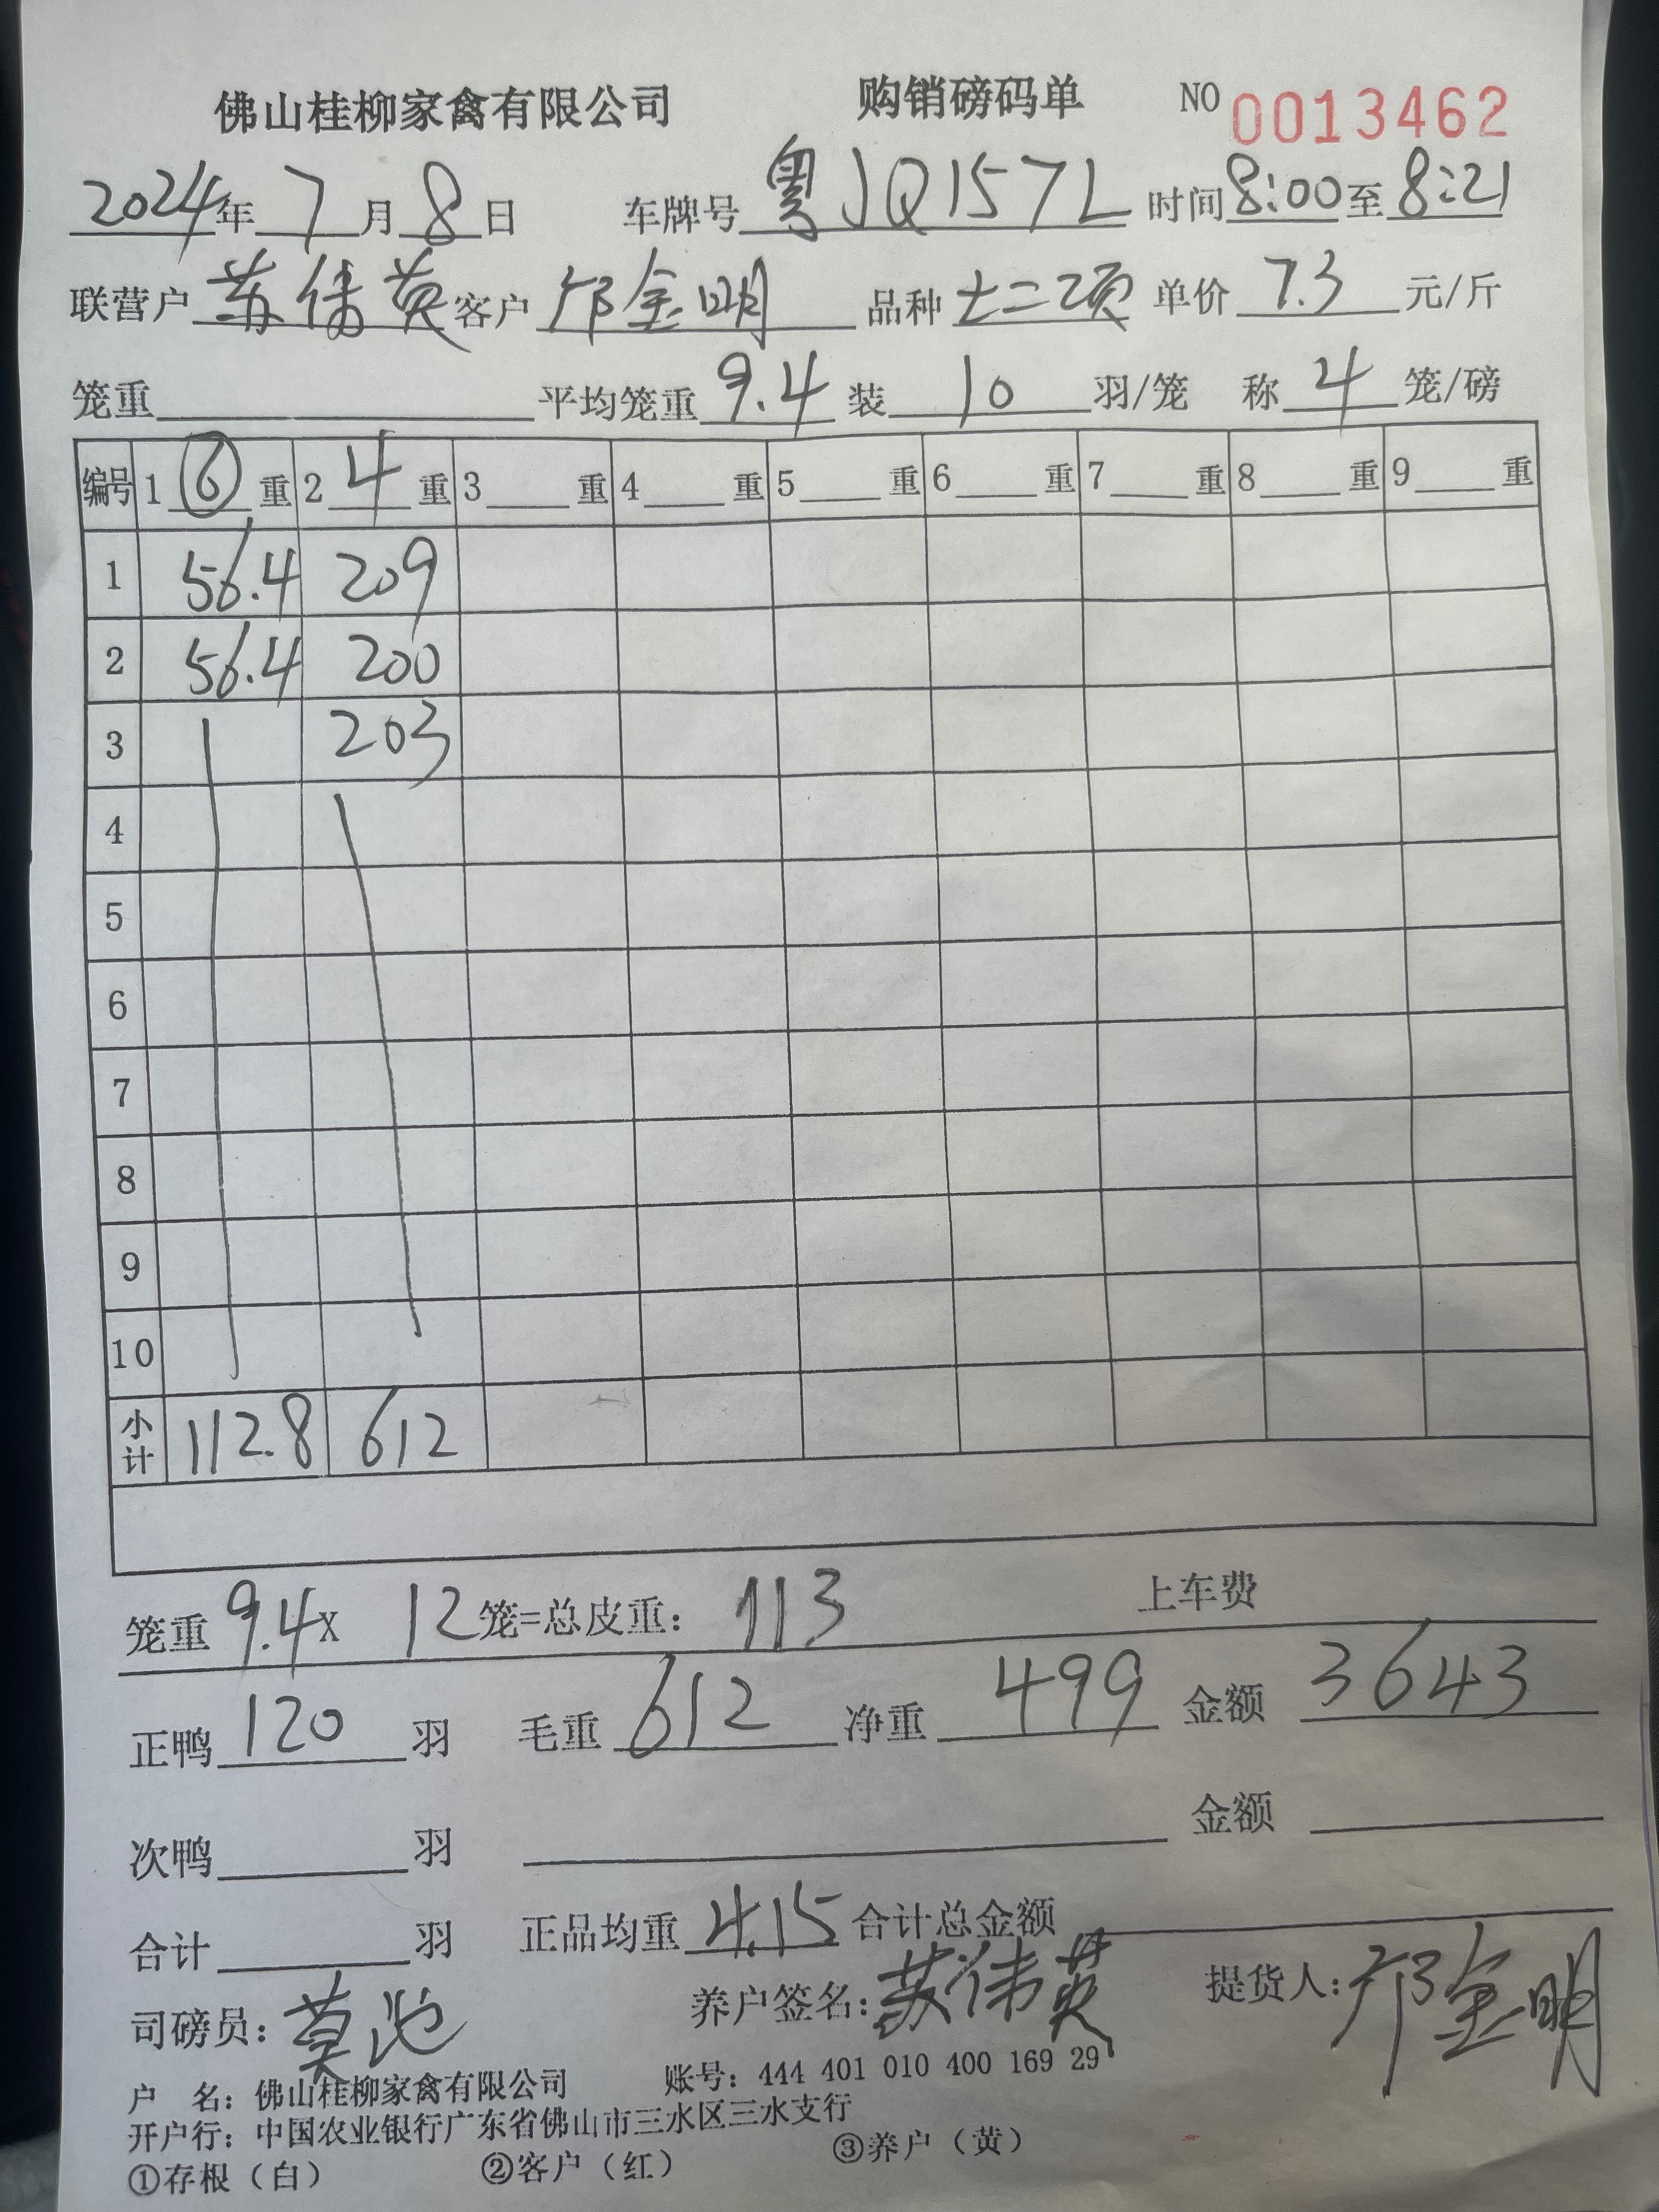 佛山桂柳家禽有限公司 购销磅码单 NO 0013462
2024年7月8日 车牌号粤JQ157L 时间8:00至8:21
联营户苏伟英客户邝金明 品种土二项 单价7.3元/斤
笼重 平均笼重9.4装10羽/笼 称4笼/磅
编号 1 6 重 2 4 重 3 重 4 重 5 重 6 重 7 重 8 重 9 重
1 56.4 209
2 56.4 200
3 203
4
5
6
7
8
9
10
小计 112.8 612
笼重9.4X 12笼=总皮重:113 上车费
正鸭120羽 毛重612净重499金额3643
次鸭 羽 金额
合计 羽 正品均重4.15合计总金额
司磅员:莫 养户签名:苏伟英 提货人:邝金明
户 名:佛山桂柳家禽有限公司 账号:444 401 010 400 169 29
开户行:中国农业银行广东省佛山市三水区三水支行
①存根(白) ②客户(红) ③养户(黄)